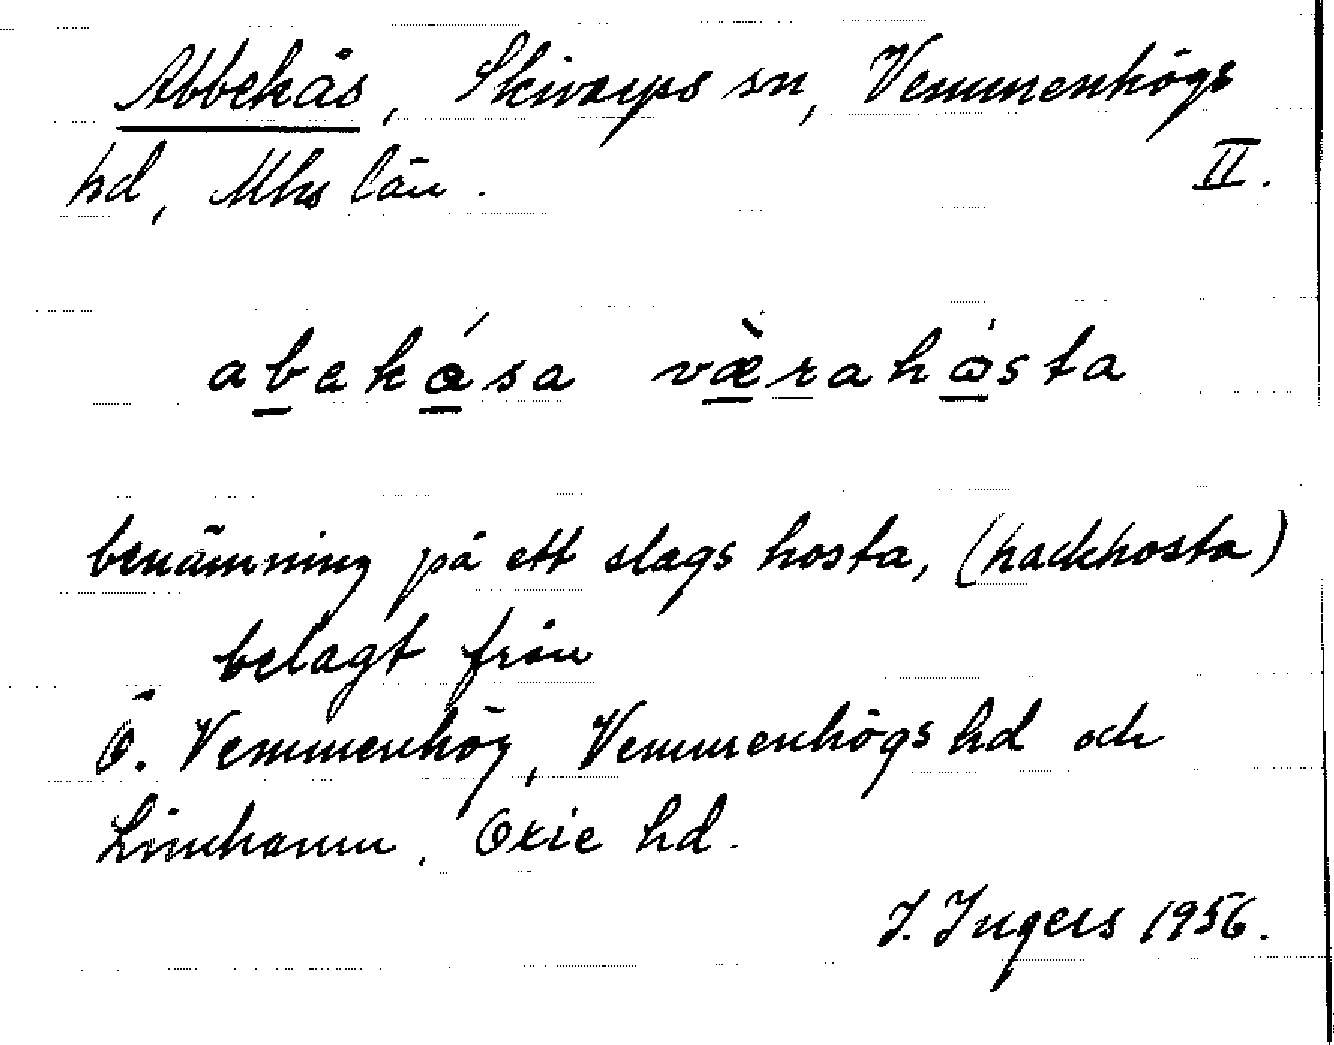 Abbekås, Skivarps sn, Vemmenhögs
hd, Mhs län. II.
abekása væ̀rahåsta
benämning på ett slags hosta, (hackhosta)
belagt från
Ö. Vemmenhög, Vemmenhögs hd och
Limhamn, Oxie hd.
I. Ingers 1956.